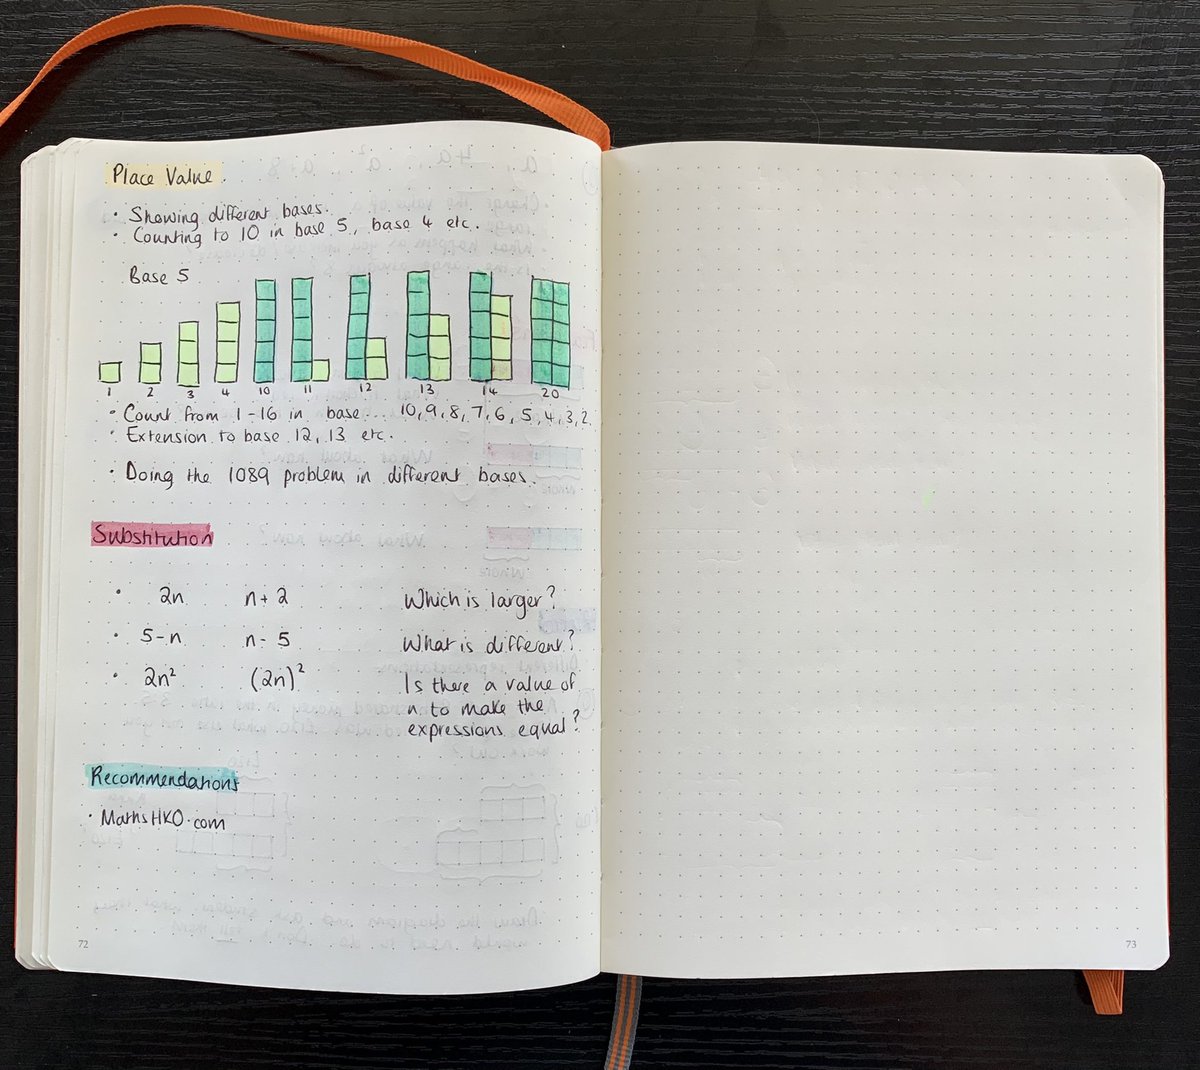 Place Value
· Showing different bases.
· Counting to 10 in base 5, base 4 etc.
Base 5
1 2 3 4 10 11 12 13 14 20
· Count from 1-16 in base... 10, 9, 8, 7, 6, 5, 4, 3, 2.
· Extension to base 12, 13 etc.
· Doing the 1089 problem in different bases.
Substitution
· 2n n+2 Which is larger?
· 5-n n-5 What is different?
· 2n² (2n)² Is there a value of
n to make the
expressions equal?
Recommendations
· MathsHKO.com
72
73